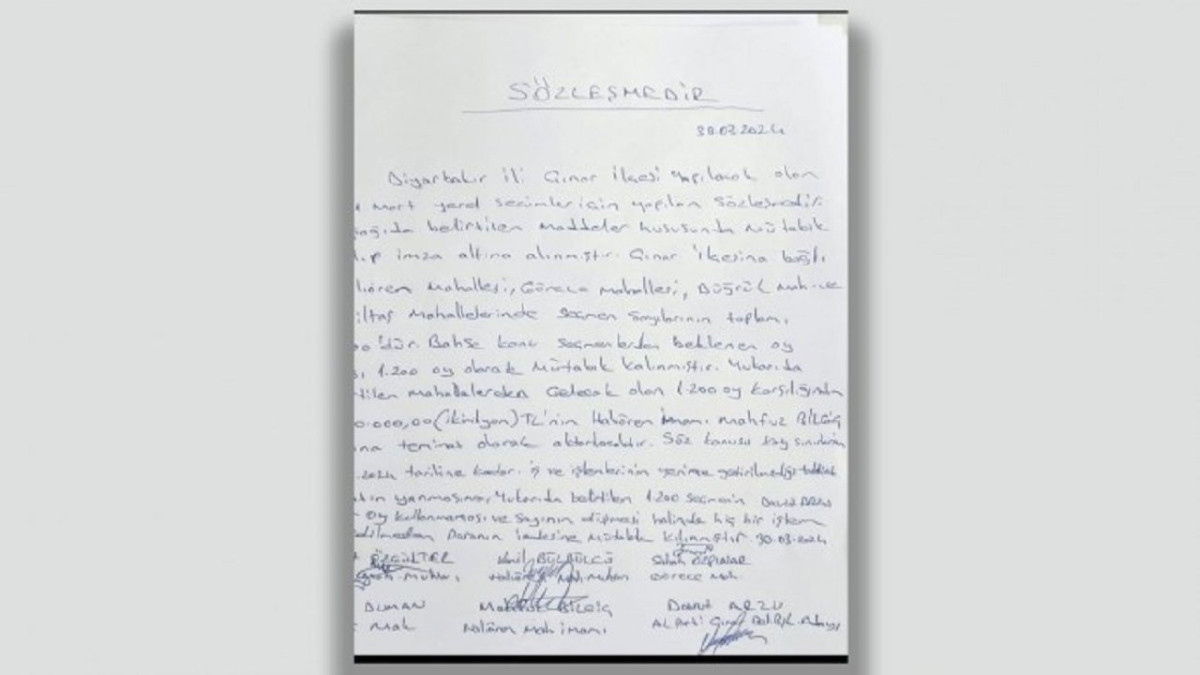 SÖZLEŞMEDİR
30.03.2024
Diyarbakır İli Çınar İlçesi yapılacak olan
Mart yerel seçimler için yapılan Sözleşmedir.
belirtilen Maddeler hususunda Mütabık
imza altına alınmıştır. Çınar İlçesina bağlı
Mahallesi, Görece Mahallesi, Düğrük Mah. ve
Mahallelerinde Seçmen Sayılarının toplamı
Bahse konu seçmenlerden beklenen oy
1.200 oy olarak Mütabık Kalınmıştır. Yukarıda
Mahallelerden Gelecek olan 1.200 oy karşılığında
000,00 (iki milyon) TL'nin Halören İmamı Mahfuz BİLGİÇ
teminat olarak aktarılacaktır. Söz konusu
tarihine kadar. iş ve işlemlerinin yerine getirilmediği
yanmasına, Yukarıda belirtilen 1.200 seçmenin Davut ARZU
oy kullanmaması ve sayının düşmesi halinde hiç bir işlem
Paranın iadesine Mütabık Kılınmıştır 30.03.2024
ÖZGÜLTER BÜLBÜLCÜ Salih ÖZPINAR
Muhtarı Halören Mah. Muhtarı Görece Mah.
DUMAN Mahfuz BİLGİÇ Davut ARZU
Mah Halören Mah imamı AK Parti Çınar Bel. Bşk. Adayı